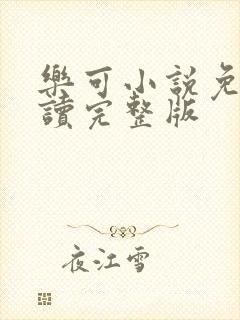 樂可小說免
讀完整版
夜江雪